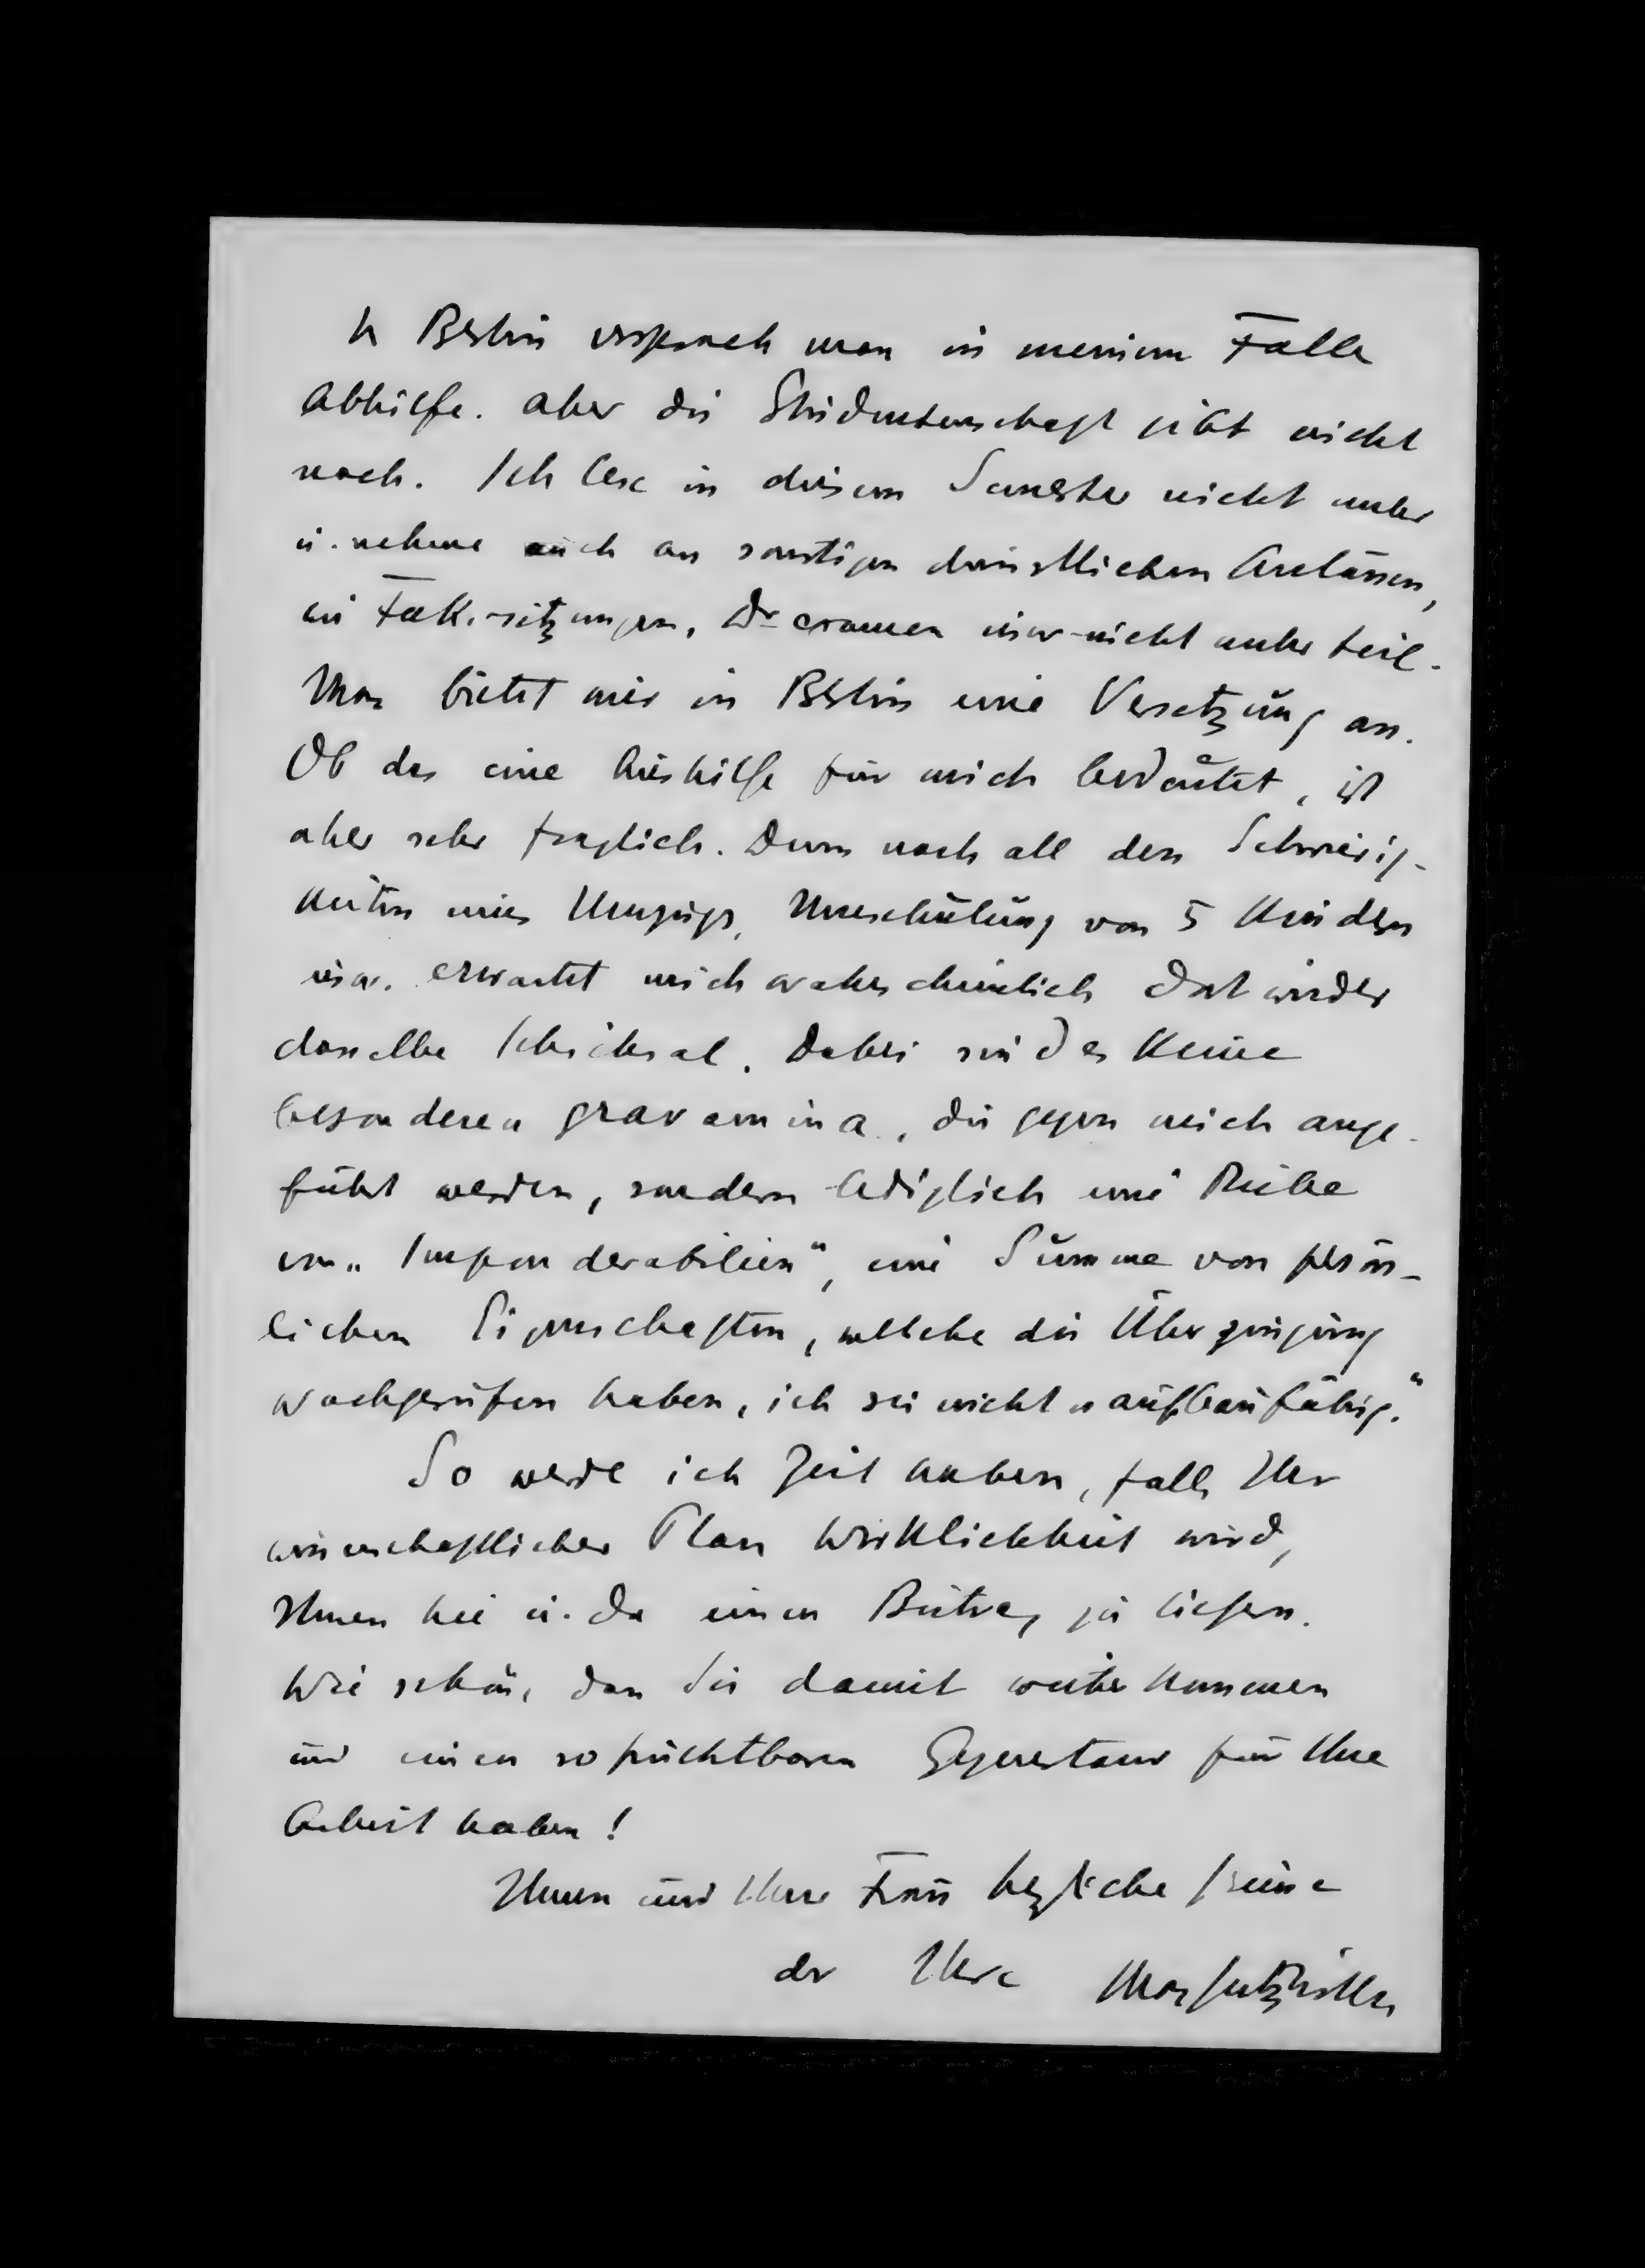 In Berlin versprach man in meinem Falle
Abhilfe. Aber die Studentenschaft gibt nicht
nach. Ich lese in diesem Semester nicht mehr
u. nehme auch an sonstigen dienstlichen Anlässen,
wie Fak.-sitzungen, Dr examen usw. nicht mehr teil.
Man bietet mir in Berlin eine Versetzung an.
Ob das eine Aushilfe für mich bedeutet, ist
aber sehr fraglich. Denn nach all den Schwierig-
keiten eines Umzugs, Umschulung von 5 Kindern
usw. erwartet mich wahrscheinlich dort wieder
dasselbe Schicksal. Dabei sind es keine
besonderen gravamina, die gegen mich ange-
führt werden, sondern lediglich eine Reihe
von „Imponderabilien“, eine Summe von persön-
lichen Eigenschaften, welche die Überzeugung
wachgerufen haben, ich sei nicht „aufbaufähig.“
So werde ich Zeit haben, falls Ihr
wissenschaftlicher Plan Wirklichkeit wird,
Ihnen hie u. da einen Beitrag zu liefern.
Wie schön, dass Sie damit weiter kommen
und einen so fruchtbaren Gegenstand für Ihre
Arbeit haben!
Ihnen und Ihrer Frau herzliche Grüsse
der Ihre